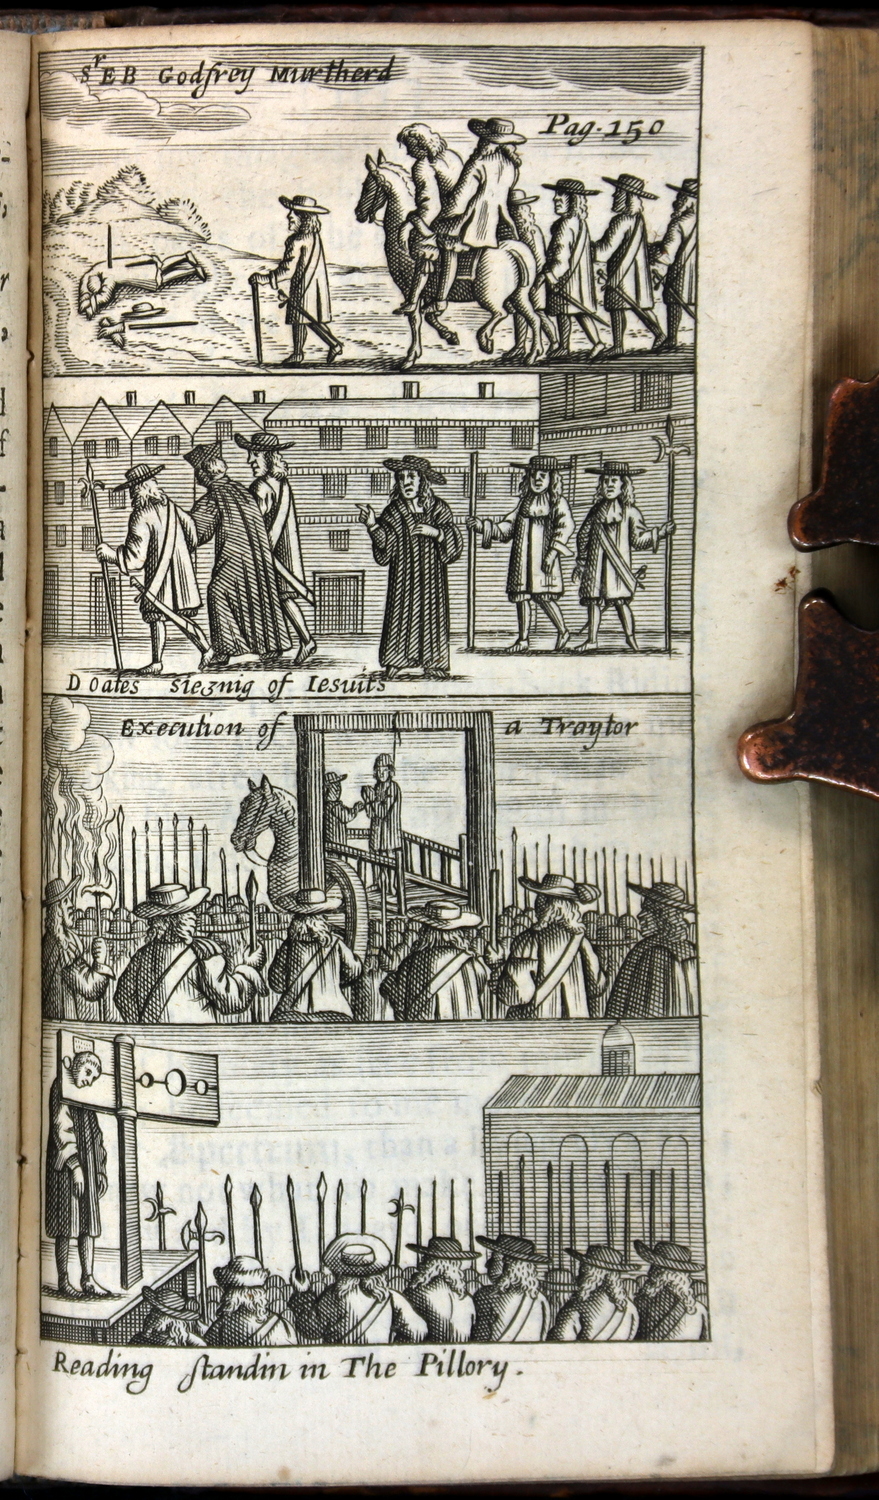 Sr E B Godfrey Murtherd
Pag. 150
D Oates Sieznig of Iesuits
Execution of a Traytor
Reading ſtandin in The Pillory.